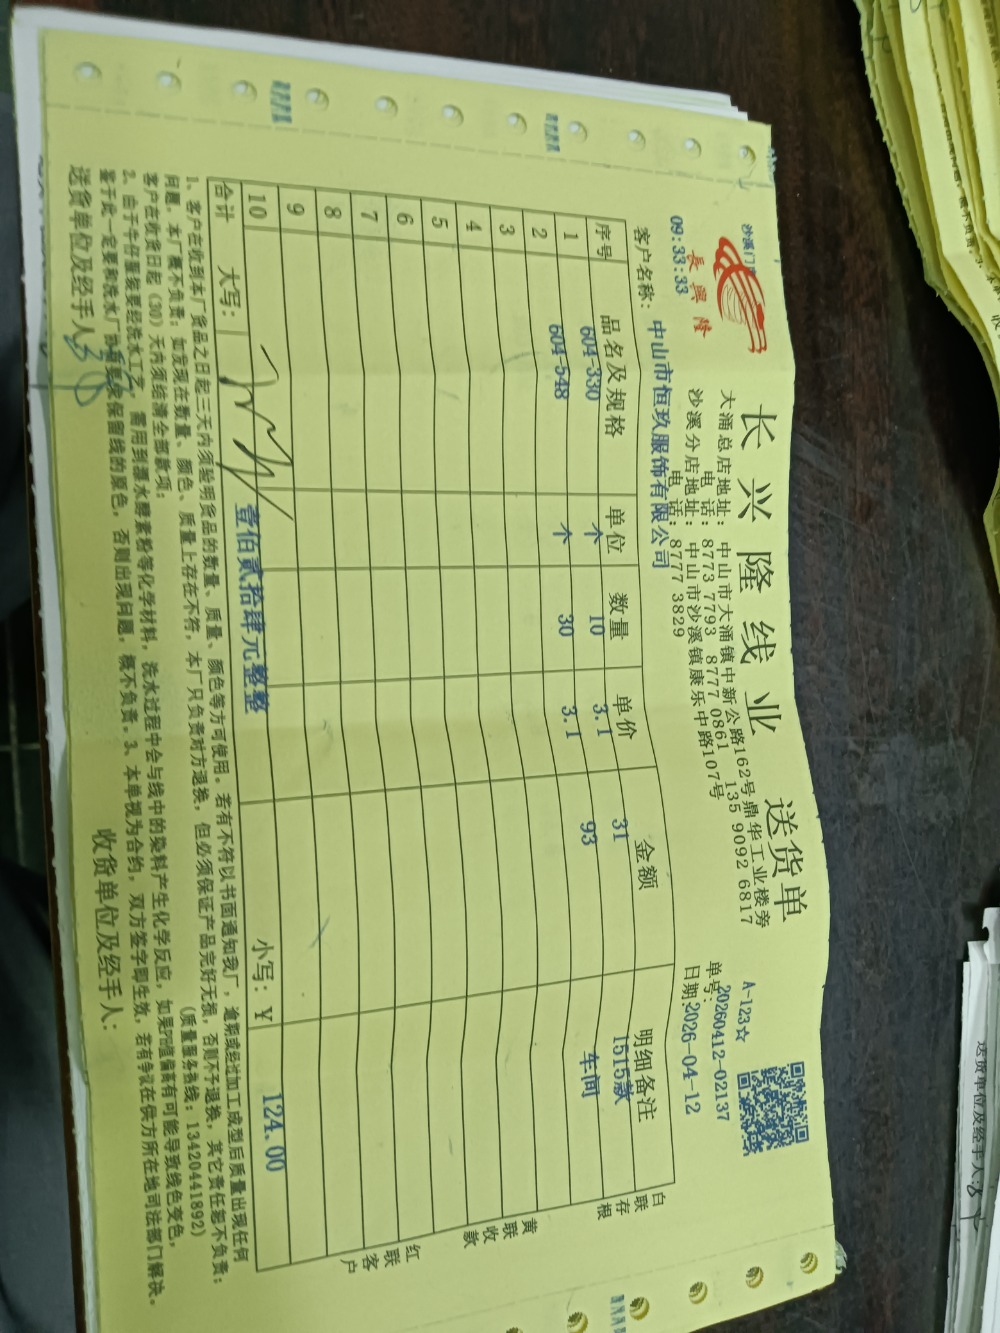 沙溪门
長興隆
09:33:33
长兴隆线业 送货单
大涌总店地址：中山市大涌镇中新公路162号鼎华工业楼旁
电 话：8773 7793 8777 0861 135 9092 6817
沙溪分店地址：中山市沙溪镇康乐中路107号
电 话：8777 3829
A-123☆
单号：20260412-02137
日期：2026-04-12
客户名称：中山市恒玖服饰有限公司
序号 品名及规格 单位 数量 单价 金额 明细备注
1 604-330 个 10 3.1 31 1515款
2 604-548 个 30 3.1 93 车间
3
4
5
6
7
8
9
10
合计 大写：壹佰贰拾肆元整整 小写：￥ 124.00
白联存根
黄联收款
红联客户
1、客户在收到本厂货品之日起三天内须验明货品的数量、质量、颜色等方可使用。若有不符以书面通知我厂，逾期或经过加工成型后质量出现任何
问题，本厂概不负责；如发现在数量、颜色、质量上存在不符，本厂只负责对方退换，但必须保证产品完好无损，否则不予退换，其它责任概不负责；
客户在收货日起（30）天内须结清全部款项； （质量服务热线：13420441892）
2、由于牛仔服装要经洗水工艺，需用到漂水酵素粉等化学材料，洗水过程中会与线中的染料产生化学反应，如果PH值偏高有可能导致线色变色，
鉴于此一定要和洗水厂协商要求保留线的原色，否则出现问题，概不负责。3、本单视为合约，双方签字即生效，若有争议在供方所在地司法部门解决。
送货单位及经手人：
收货单位及经手人：
送货单位及经手人：